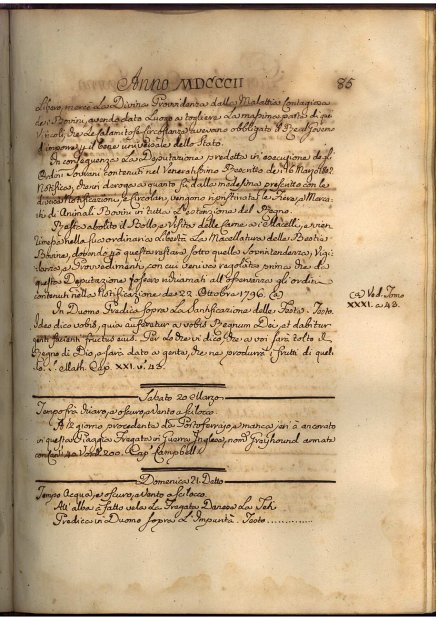 Anno MDCCCII 85
Libero, mercè la Divina Provvidenza dalla Malattia Contagiosa
de' Bovini, avendo dato luogo a togliere la massima parte di quei
Vincoli, che le calamitose circostanze avevano obbligato il Real Governo
d'imporre per il bene universale dello Stato.
In conseguenza la Deputazione predetta in esecuzione degli
Ordini Sovrani contenuti nel Veneratissimo Rescritto de' 16 Marzo 1802
Notifica, che in deroga a quanto fu dalla medesima prescritto con le
Notificazioni, e Circolari, vengono ripristinate le Fiere, e Merca-
ti di Animali Bovini in tutta l'estensione del Regno.
Resta abolito il Bollo, e Visita delle Carne a' Macelli, e
nella sua ordinaria libertà la Macellatura delle Bestie
Bovine, dovendo questa restare sotto quella Sovrintendenza, Vigi-
lanza, e Provvedimenti, con cui veniva regolata prima che da
questa Deputazione fossero richiamati all'osservanza gli ordini
contenuti nella Notificazione de' 22 Ottobre 1796. (a)
(a) Ved. Tomo
XXXI. a 43.
In Duomo Predica sopra la Santificazione delle Feste. Testo.
Ideo dico vobis, quia auferetur a vobis Regnum Dei, et dabitur
genti facienti fructus eius. Per lo che vi dico, che a voi sarà tolto il
Regno di Dio, e sarà dato a gente, che ne produrrà i frutti di quel-
lo... Matth. Cap. XXI. v. 43.
Sabato 20 Marzo
Tempo fra chiaro, e oscuro, e Vento a scilocco.
A 12 giorno procedente da Portoferrajo e manca ieri à ancorato
in questa Spiaggia Fregata in Guerra Inglese, nom. Greyhound armata
con Can. 40 Uom. 200. Cap. Campbell
Domenica 21. Detto
Tempo Acqua, e oscuro, e Vento a scilocco.
All'alba à fatto vela la Fregata Danese La
Predica in Duomo sopra l'Impurità. Testo..............